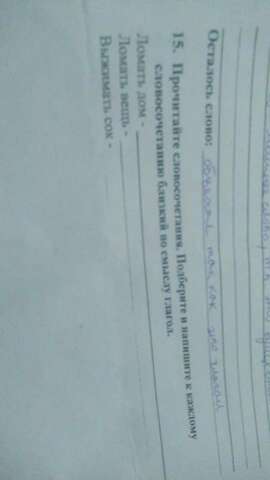 Осталось слово: обучаю так как это глагол
15. Прочитайте словосочетания. Подберите и напишите к каждому
словосочетанию близкий по смыслу глагол.
Ломать дом -
Ломать вещь -
Выжимать сок -